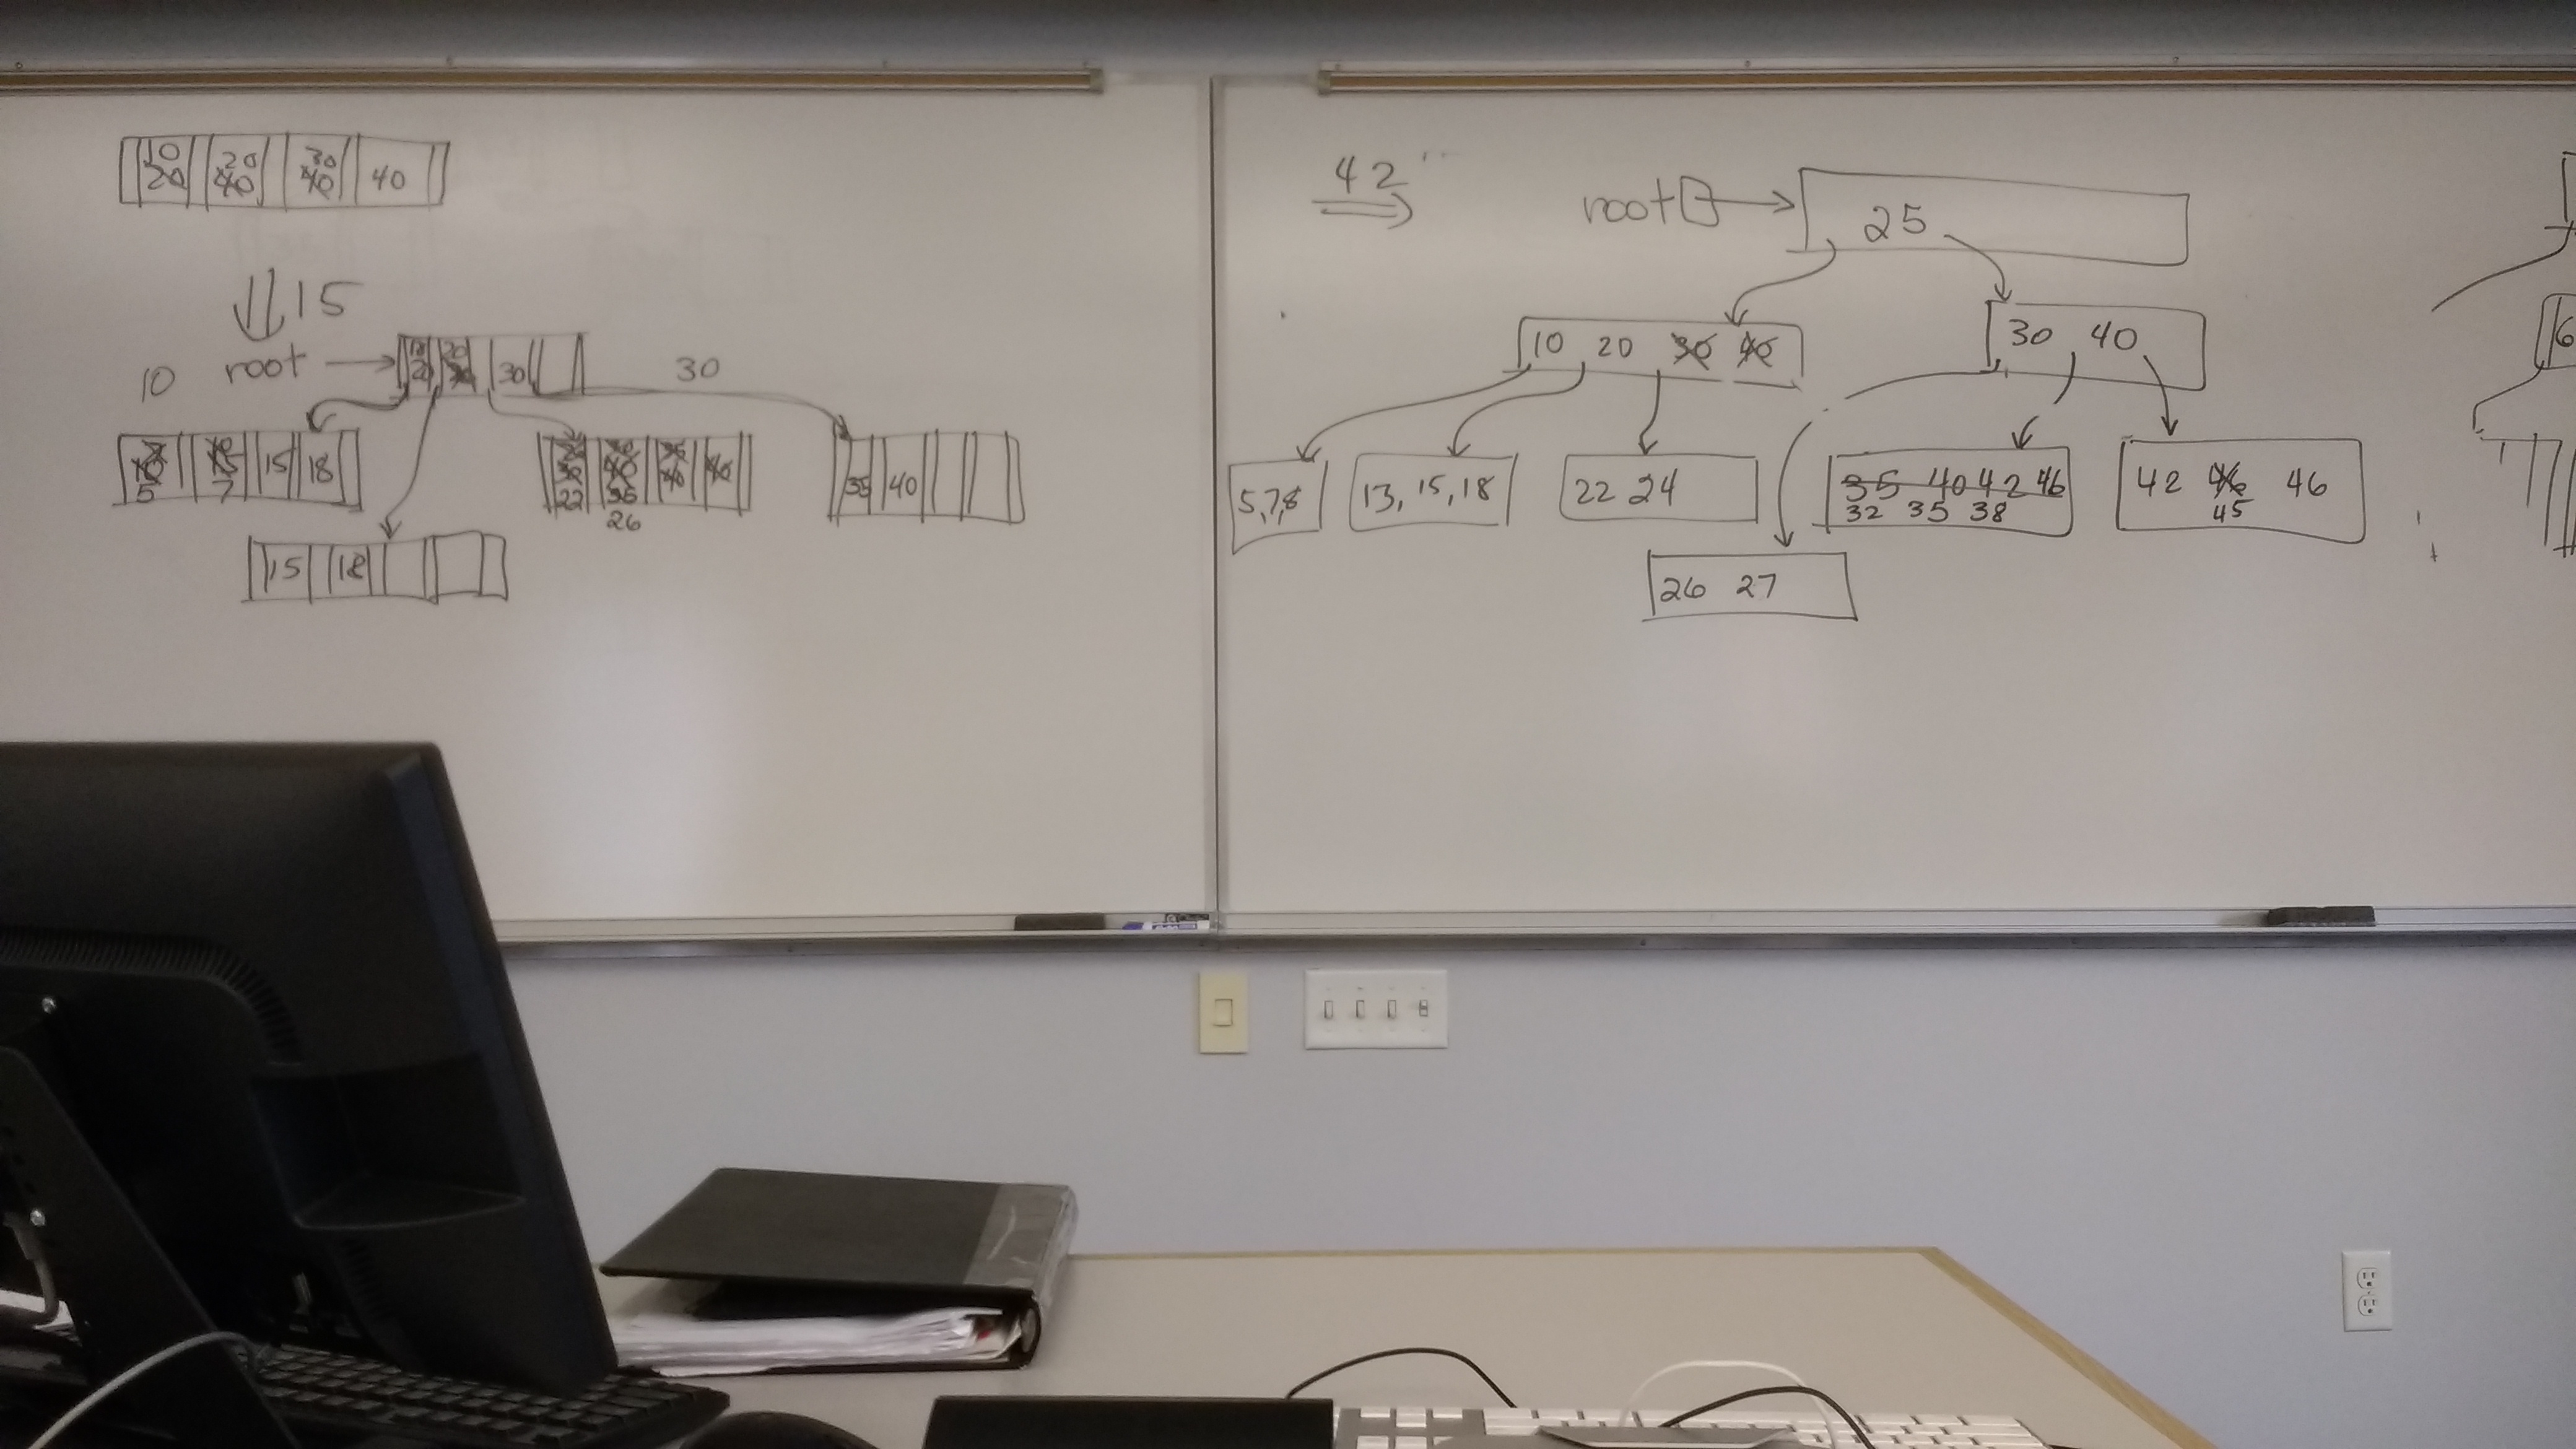 10 20 30
20 40 40 40
15
10 root 10 20 30
20
30
15 18
5 7
22 35
26
35 40
15 18
42
root 25
10 20 30 40
30 40
5,7,8
13, 15, 18
22 24
35 40 42 46
32 35 38
42 46 46
45
26 27
6